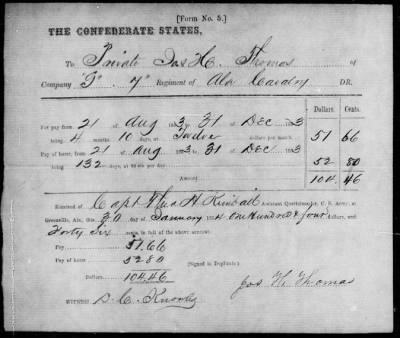 [Form No. 5.]
THE CONFEDERATE STATES,
To Private Jos H. Thomas of
Company "G" 7" Regiment of Ala Cavalry DR.
Dollars Cents.
For pay from 21 of Aug 1863 31 of Dec 1863
being 4 months 10 days, at Twelve dollars per month, 51 66
Pay of horse, from 21 of Aug 1863 31 of Dec 1863
being 132 days, at 40 cts per day. 52 80
Amount, 104 46
Received of Capt Jno H Kimball Assistant Quartermaster, C. S. Army, at
Greenville, Ala, this 30 day of January 1864 One Hundred & four dollars, and
Forty Six cents, in full of the above account.
Pay 51.66
Pay of horse 52 80
(Signed in Duplicate.)
Dollars, 104 46
Jos H. Thomas
WITNESS D. C. Knowles